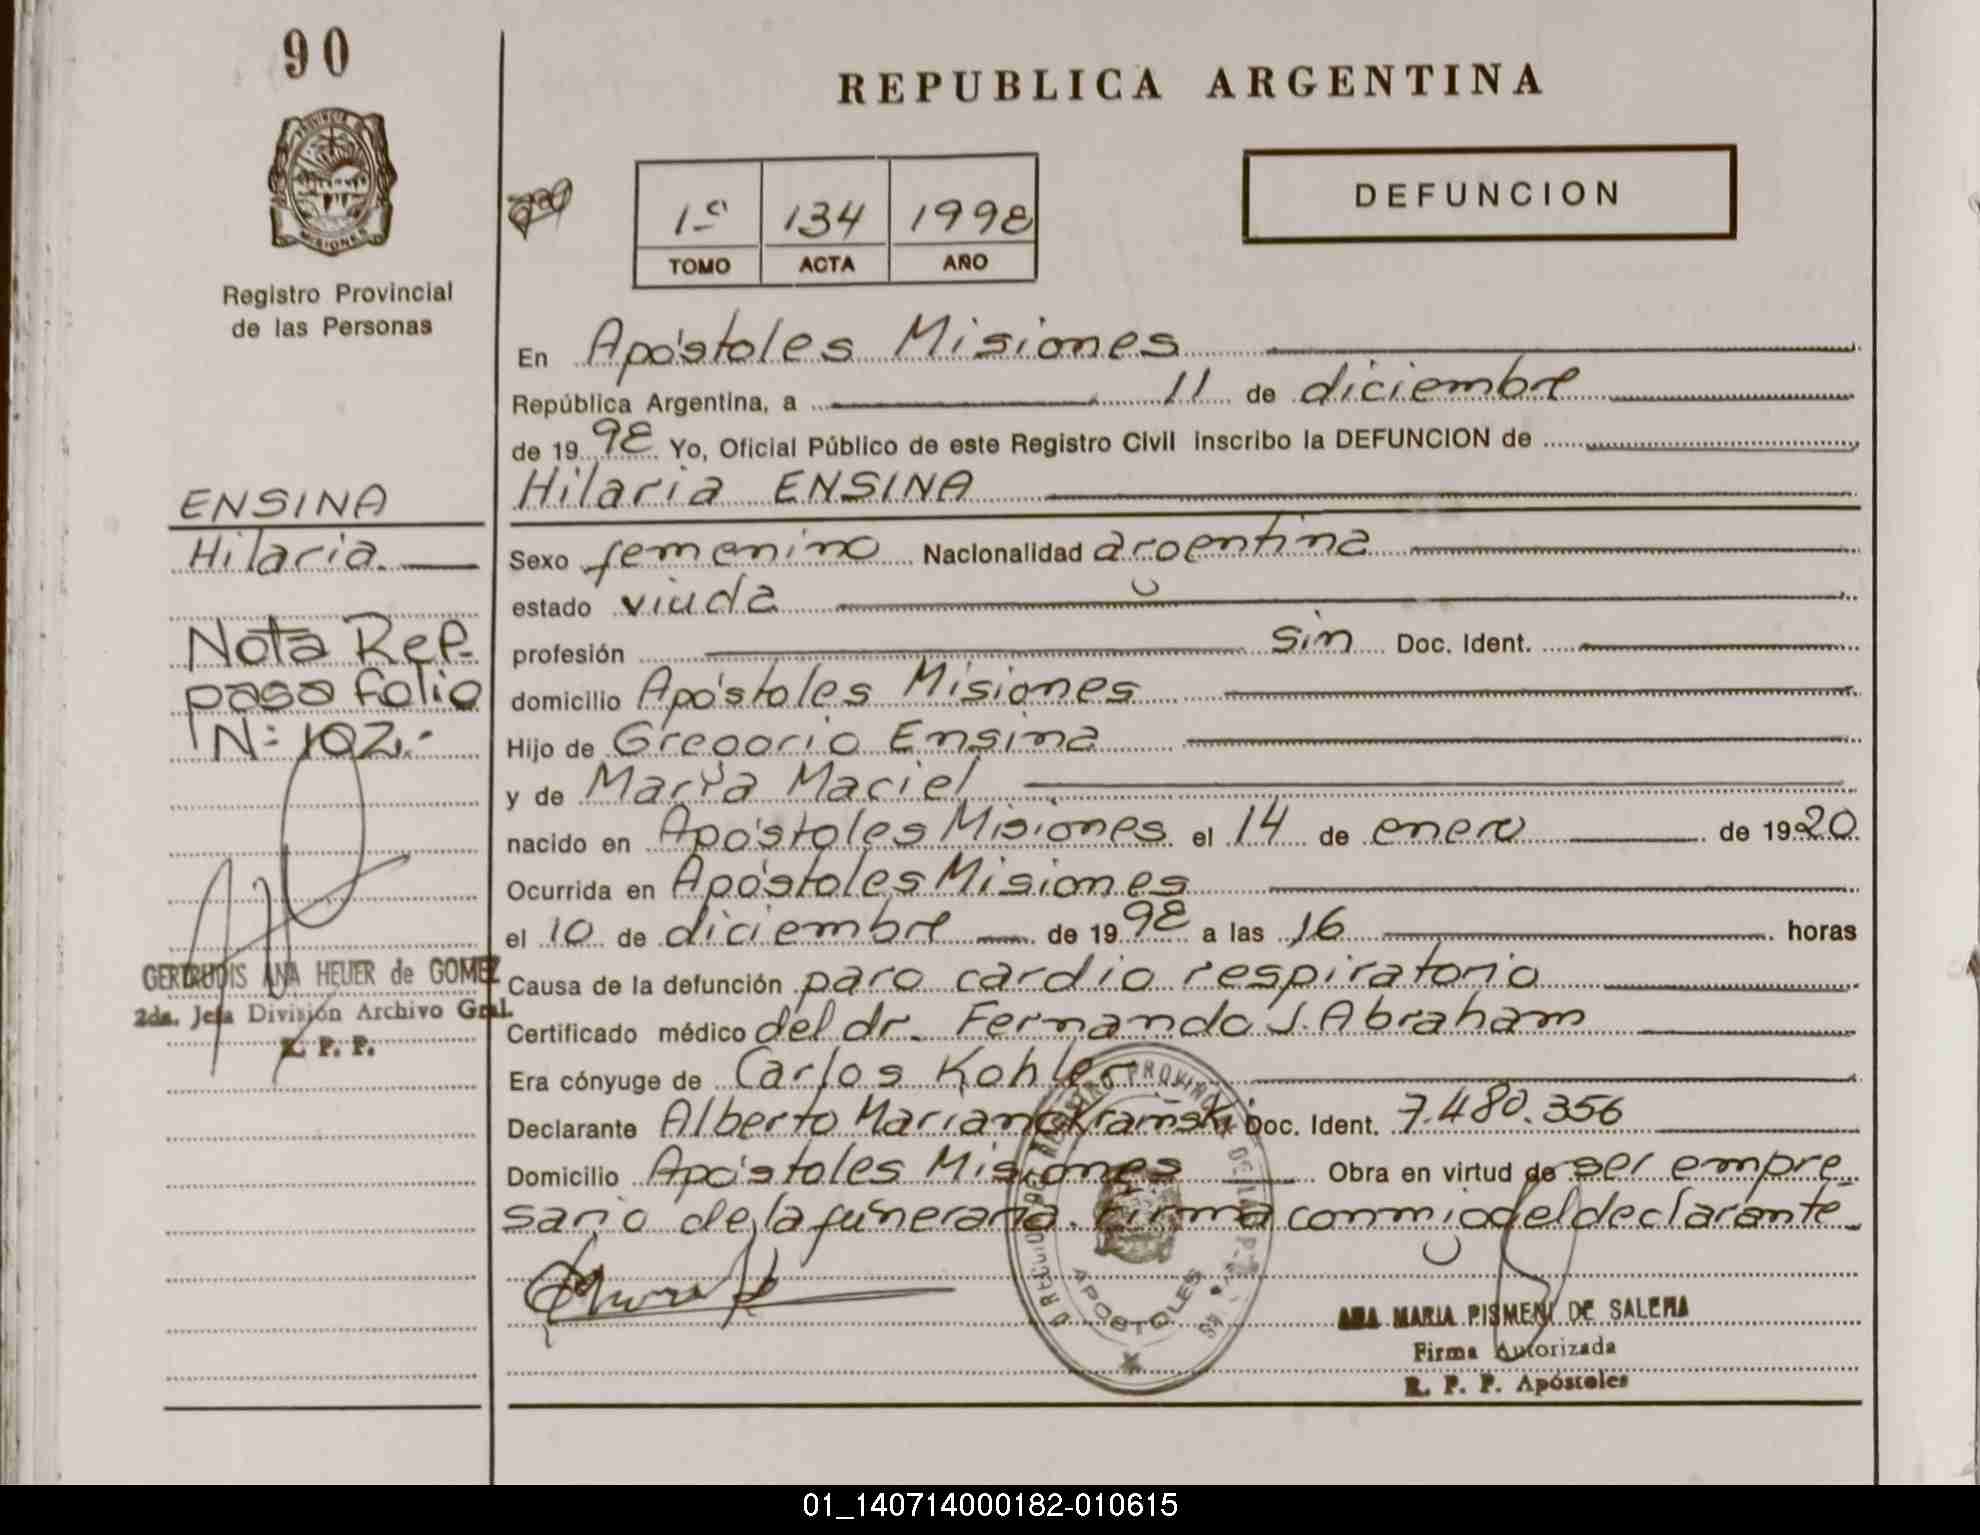 90
REPUBLICA ARGENTINA
PROVINCIA DE
MISIONES
Registro Provincial
de las Personas
1º 134 1998
TOMO ACTA AÑO
DEFUNCION
En Apóstoles Misiones
República Argentina, a 11 de diciembre
de 1998 Yo, Oficial Público de este Registro Civil inscribo la DEFUNCION de
Hilaria ENSINA
ENSINA
Hilaria.
Nota Ref.
pasa folio
Nº 102.-
GERTRUDIS ANA HEUER de GOMEZ
2da. Jefa División Archivo Gral.
R. P. P.
Sexo femenino Nacionalidad argentina
estado viuda
profesión sin Doc. Ident.
domicilio Apóstoles Misiones
Hijo de Gregorio Ensina
y de María Maciel
nacido en Apóstoles Misiones el 14 de enero de 1920
Ocurrida en Apóstoles Misiones
el 10 de diciembre de 1998 a las 16 horas
Causa de la defunción paro cardio respiratorio
Certificado médico del dr. Fernando J. Abraham
Era cónyuge de Carlos Kohler
Declarante Alberto Mariano Kramski Doc. Ident. 7.480.356
Domicilio Apóstoles Misiones Obra en virtud de ser empre-
sario de la funeraria. Firma conmigo el declarante
APOSTOLES
ANA MARIA PISMENI DE SALEMA
Firma Autorizada
R. P. P. Apóstoles
01_140714000182-010615